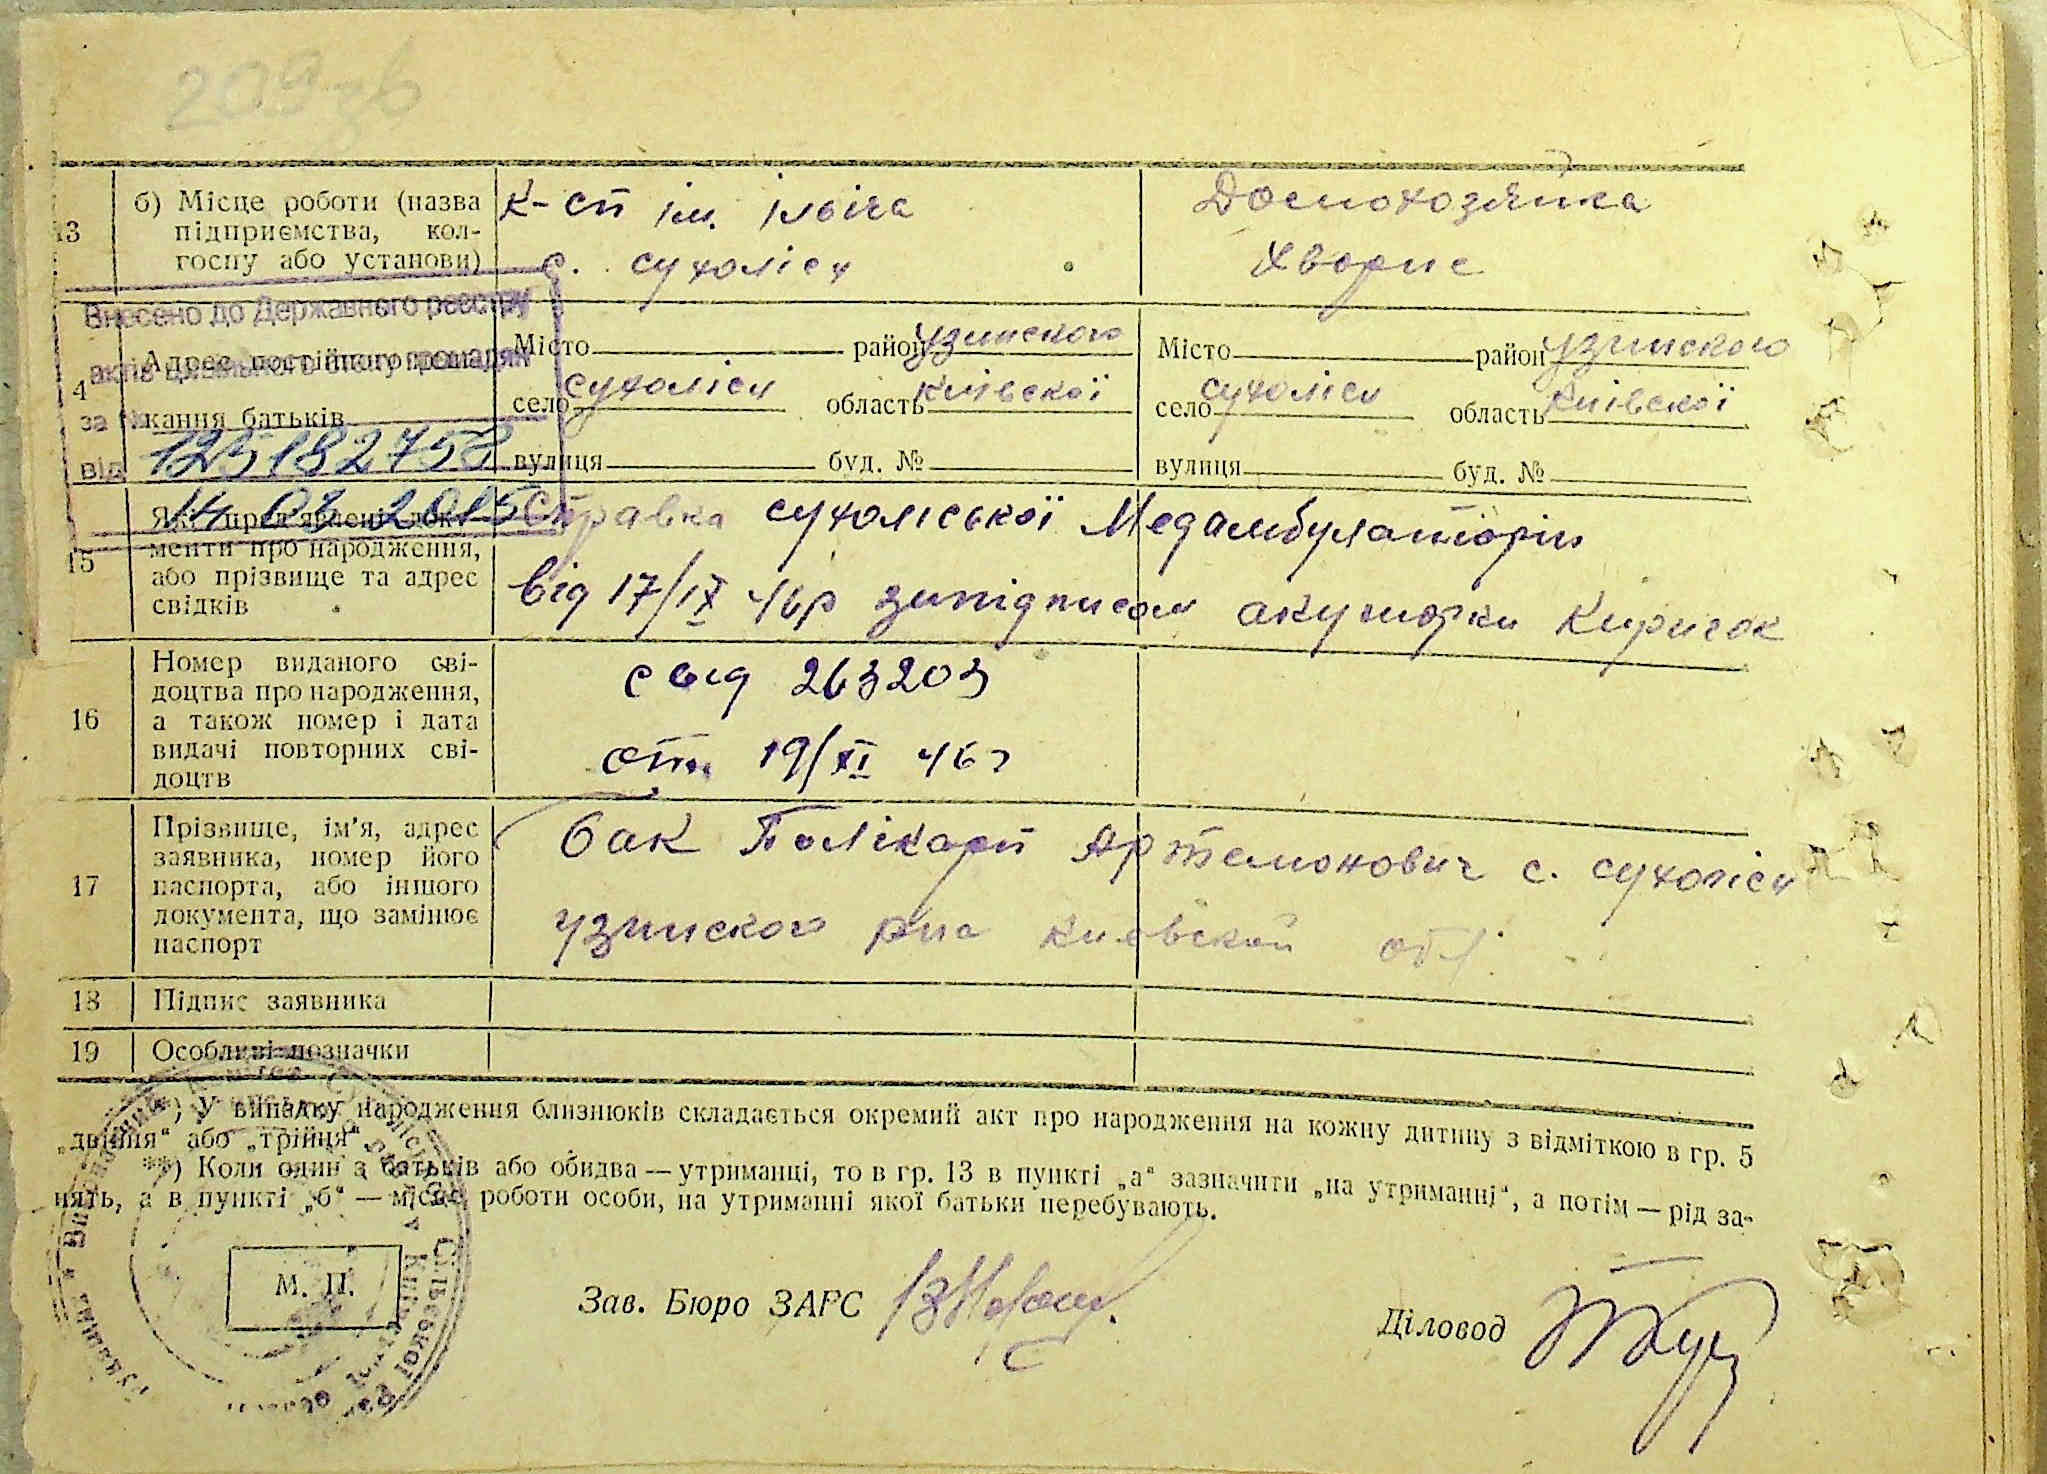 209 зв
13
б) Місце роботи (назва
підприємства, кол-
госпу або установи)
к-сп ім. Ілліча
с. сухоліси
Домохозяйка
Хворие
Внесено до Державного реєстру
актів цивільного стану громадян
за №
125182758
від
14 03 2015
4
Адрес постійного
кання батьків
Місто район узинского
село сухоліси область київскої
вулиця буд. №
Місто район узинского
село сухоліси область київскої
вулиця буд. №
15
Які пред'явлені доку-
менти про народження,
або прізвище та адрес
свідків
Справка сухоліської Медамбулаторіи
від 17/IX 46р за підписом акушорки Киричок
16
Номер виданого сві-
доцтва про народження,
а також номер і дата
видачі повторних сві-
доцтв
свід 263203
от 19/XI 46 г
17
Прізвище, ім'я, адрес
заявника, номер його
паспорта, або іншого
документа, що замінює
паспорт
Бак Полікарп Артемонович с. сухоліси
узинского р-на киевской обл.
18
Підпис заявника
19
Особливі позначки
*) У випадку народження близнюків складається окремий акт про народження на кожну дитину з відміткою в гр. 5
„двійня“ або „трійця“.
**) Коли один з батьків або обидва — утриманці, то в гр. 13 в пункті „а“ зазначити „на утриманні“, а потім — рід за-
нять, а в пункті „б“ — місце роботи особи, на утриманні якої батьки перебувають.
М. П.
Зав. Бюро ЗАГС
Діловод